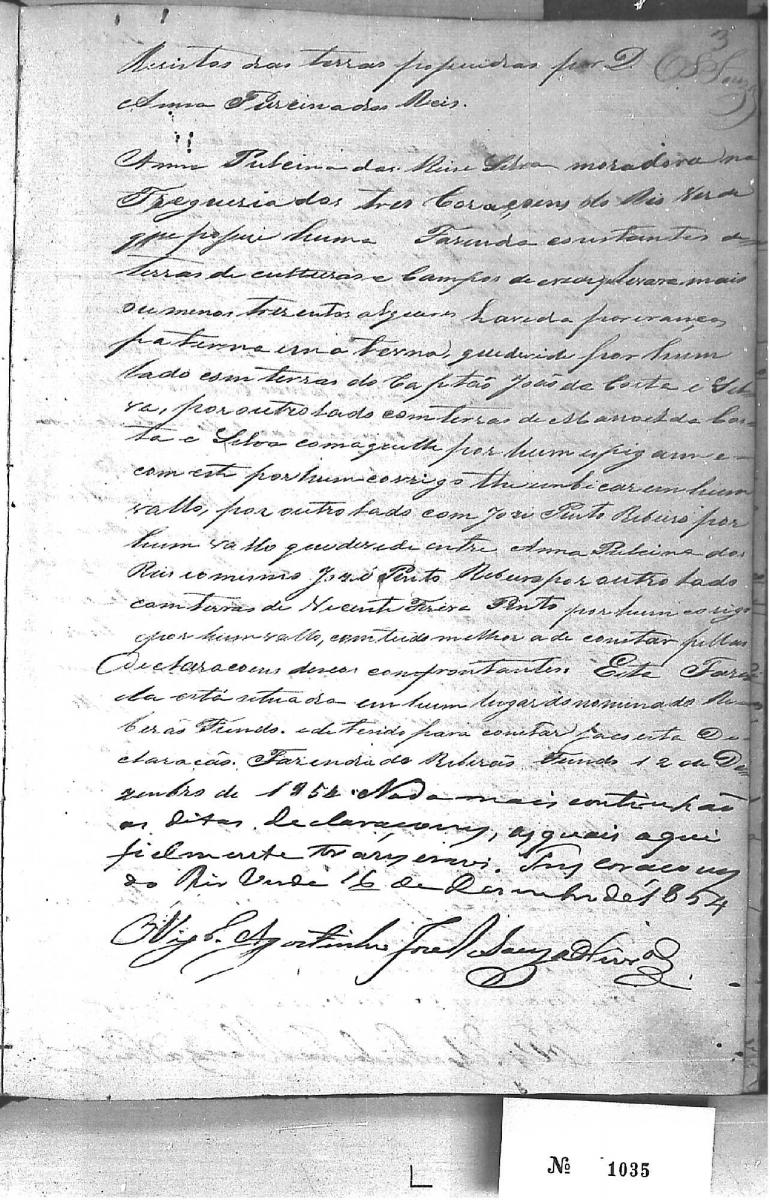 3
Souza
Ricistos das terras pessuidas por D.
Anna Purcina dos Reis.
Anna Pulcina dos Reis Silva moradora na
Freguesia dos tres Coraçoens do Rio Verde
que possue huma Fazenda constantes de
terras de culturas e Campos de crear, que levara mais
ou menos trezentos alqueires havida por erança
paterna e materna, que devide por hum
lado com terras do Captão João da Costa e Sil
va, por outro lado com terras de Manoel da Cos
ta e Silva com aquelle por hum espigam e
com este por hum corrigo the embicar em hum
vallo, por outro lado com José Pinto Ribeiro por
hum vallo que devide entre Anna Pulcina dos
Reis com esmo José Pinto Ribeiro por outro lado
com terras de Vicente Pinto por hum corigo
e por hum vallo, com tudo melhor a de constar pellas
declaracoens desses confrontantes. Esta Fazen
da está situada em hum lugar donominado Ri
berão Fundo. e detendo para constar faço esta De
claração. Fazenda do Riberão Fundo 12 de De
zenbro de 1854. Nada mais continhão
as ditas declaraçoens, as quais aqui
fielmente transcrevi. Tres coracoens
do Rio Verde 16 de Dezembro de 1854
O Vigr.o Agostinho José de Souza
Nº 1035